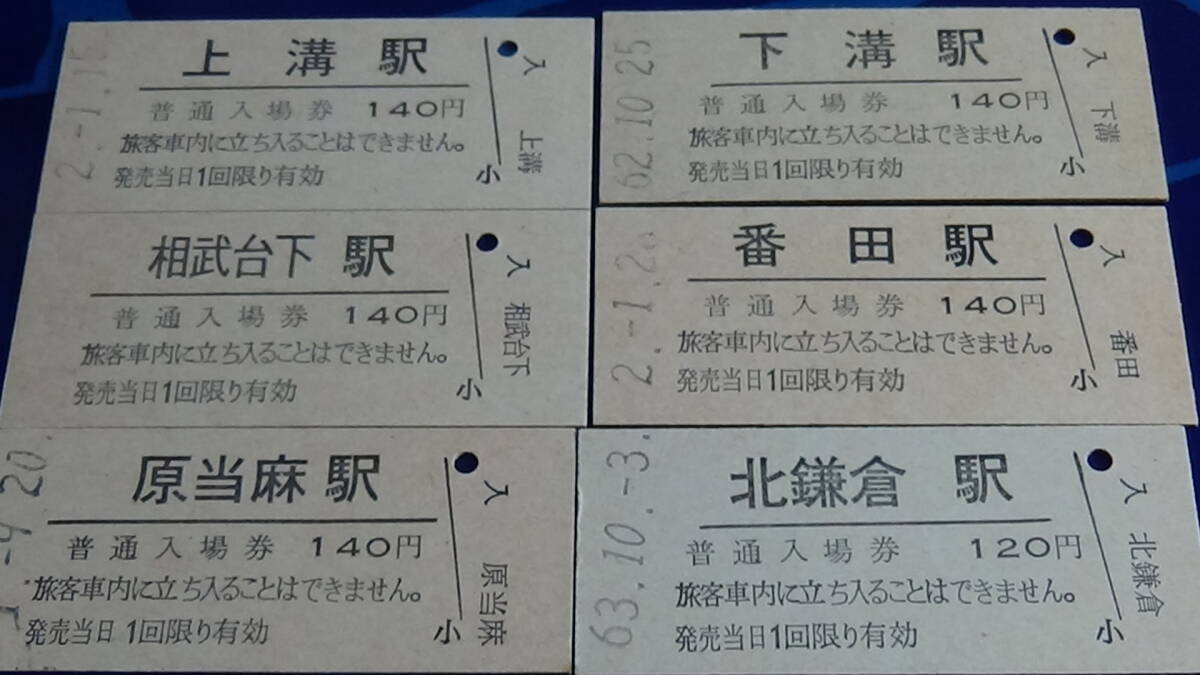 2.-1.15
上溝駅
普通入場券 140円
旅客車内に立ち入ることはできません。
発売当日1回限り有効
入
上溝
小
62.10.25
下溝駅
普通入場券 140円
旅客車内に立ち入ることはできません。
発売当日1回限り有効
入
下溝
小
相武台下駅
普通入場券 140円
旅客車内に立ち入ることはできません。
発売当日1回限り有効
入
相武台下
小
2.-1.2
番田駅
普通入場券 140円
旅客車内に立ち入ることはできません。
発売当日1回限り有効
入
番田
小
20.
原当麻駅
普通入場券 140円
旅客車内に立ち入ることはできません。
発売当日1回限り有効
入
原当麻
小
63.10.-3.
北鎌倉駅
普通入場券 120円
旅客車内に立ち入ることはできません。
発売当日1回限り有効
入
北鎌倉
小